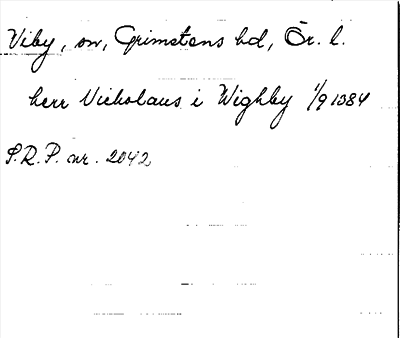 Viby, sn, Grimstens hd, Ör. l.
herr Nicholaus i Wighby 1/9 1384
S.R.P. nr. 2042